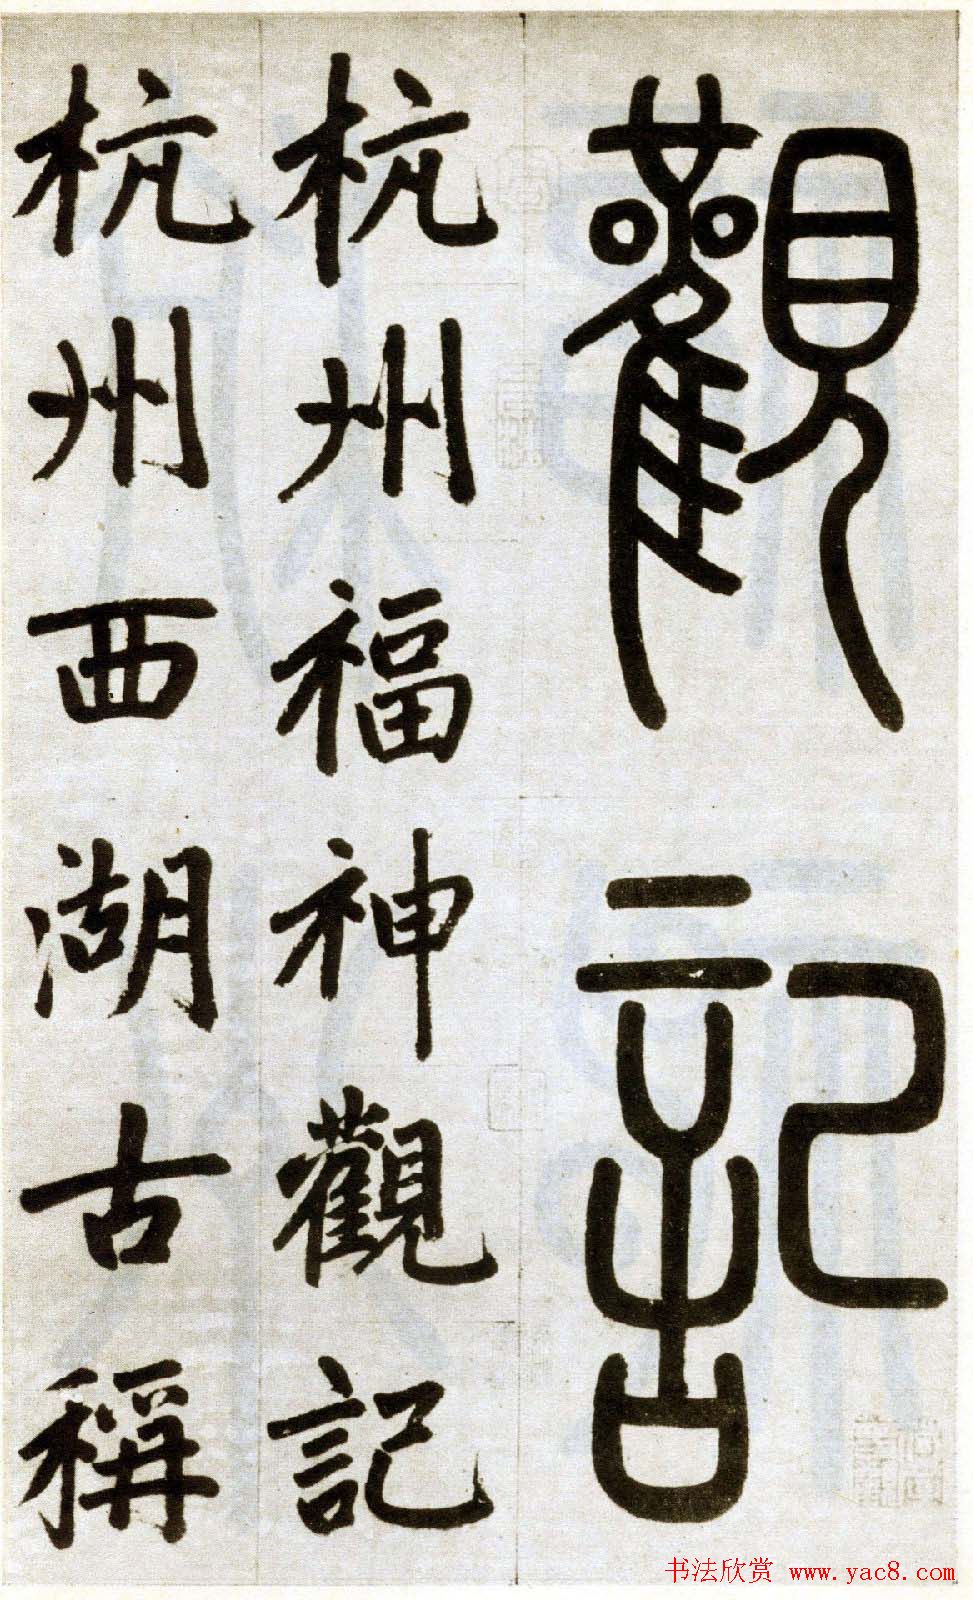 觀記
杭州福神觀記
杭州西湖古稱
书法欣赏 www.yac8.com